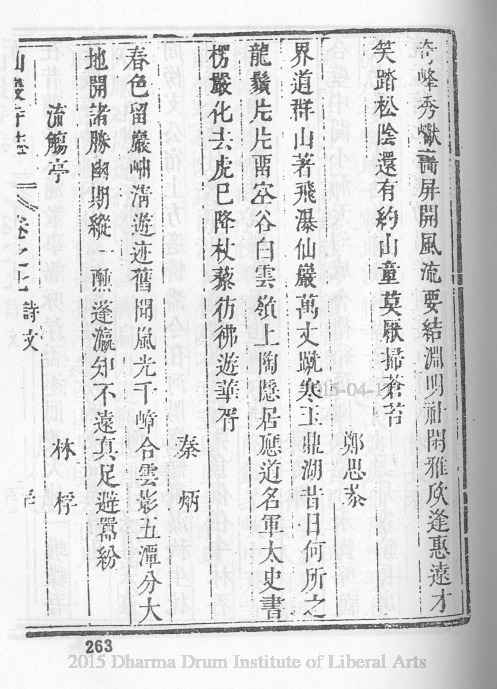 奇峰秀巘畵屏開風流要結淵明社閑雅欣逢惠遠才
笑踏松陰還有約山童莫厭掃蒼苔
鄭思泰
界道群山著飛瀑仙巖萬丈跳寒玉鼎湖昔日何所之
龍鬚片片畱空谷白雲嶺上陶隱居應道名軍太史書
楞嚴化去虎已降杖藜彷彿遊華胥
秦炳
春色留巖岫淸遊迹舊聞嵐光千嶂合雲影五潭分大
地開諸勝幽期縱一酣蓬瀛知不遠真足避囂紛
流觴亭
林桴
寺志 卷之 詩文
263
2015-04-1
2015 Dharma Drum Institute of Liberal Arts